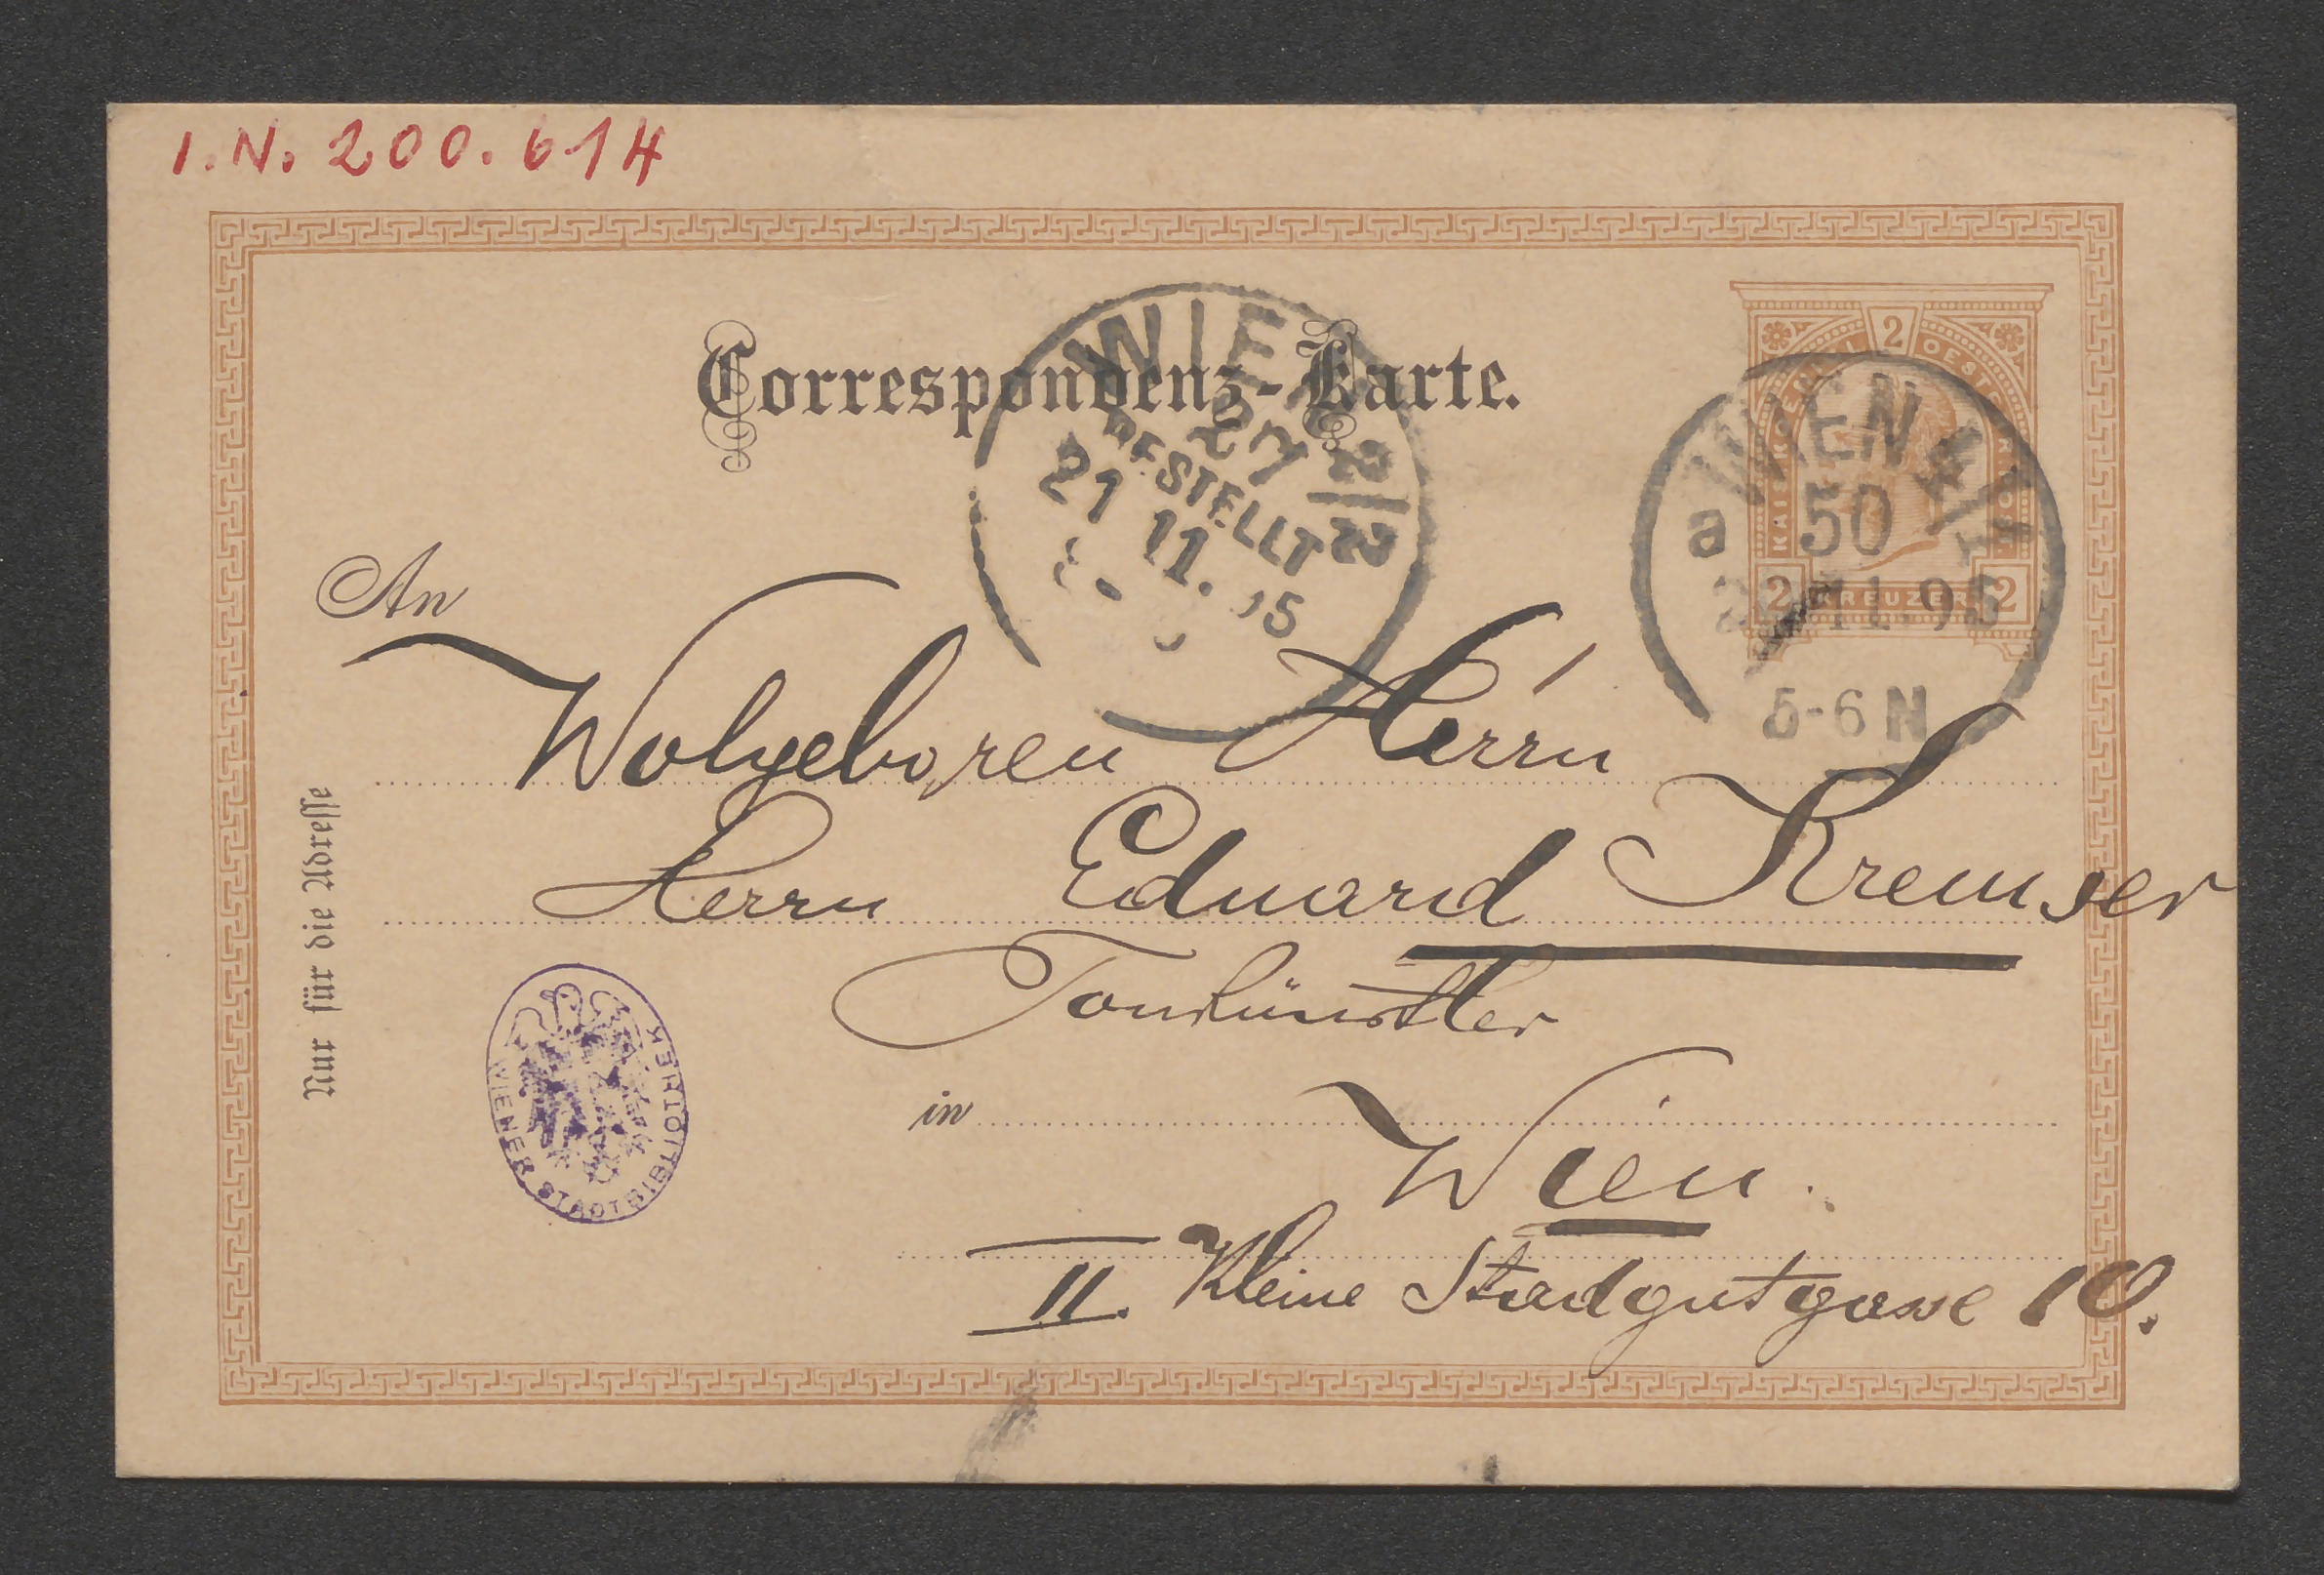 I.N. 200.614
Correspondenz-Karte.
WIEN
2/2
BESTELLT
21 11. 95
2
KREUZER
2 2
WIEN 4/1
a 50
11 95
5-6 N
An
Wolgeboren Herrn
Herrn Eduard Kremser
Tonkünstler
in Wien.
II. Kleine Stadgutgasse 10.
Nur für die Adresse
WIENER STADTBIBLIOTHEK